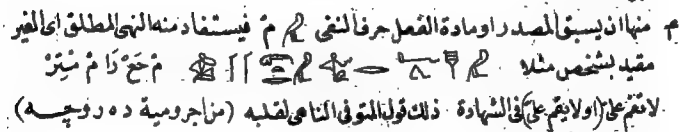 م منها ان يسبق المصدر او مادة الفعل حرف النفى مْ فيستفاد منه النهى المطلق اى الغير
مقيد بشخص مثلا مْ حَعْ رَا مْ مْتِرْ
لا تقم علىّ (او لا يقم علىّ) فى الشهادة ذلك قول المتوفى الناهى لقلبه (من اجرومية ده روچه)